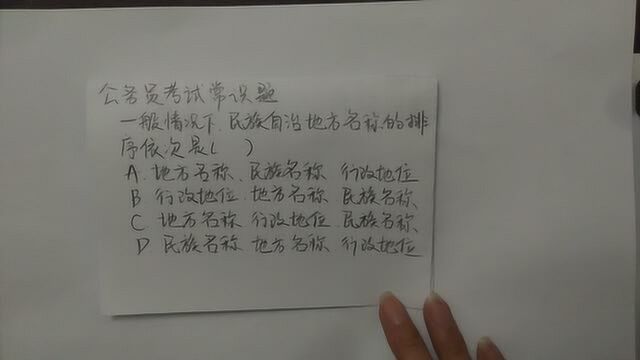 公务员考试常识题
一般情况下,民族自治地方名称的排
序依次是( )
A. 地方名称、民族名称 行政地位
B 行政地位、地方名称 民族名称、
C 地方名称 行政地位、民族名称、
D 民族名称、地方名称 行政地位